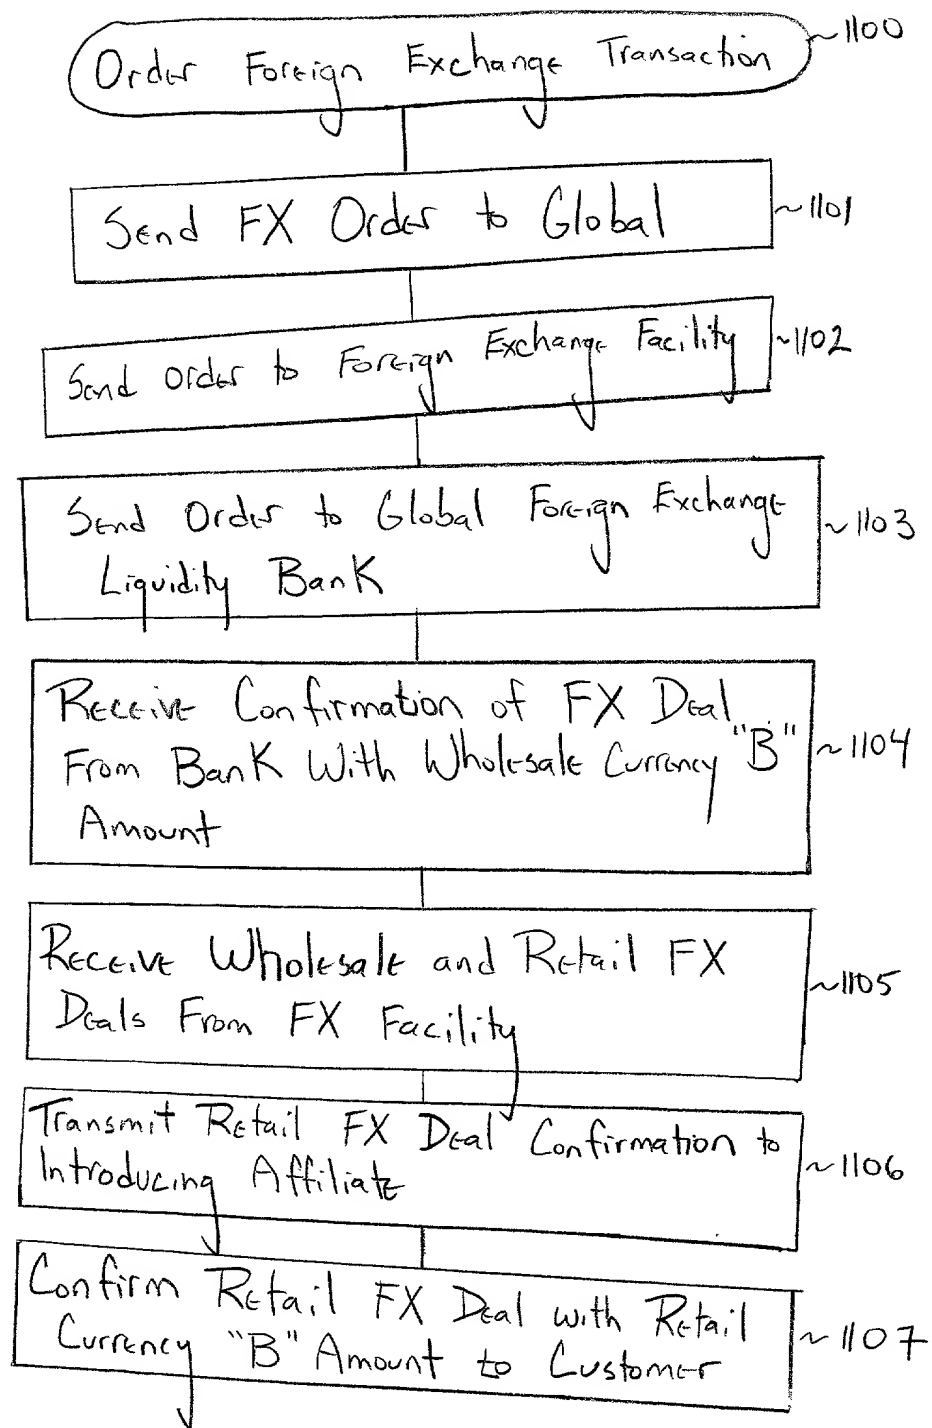 Order Foreign Exchange Transaction ~1100
Send FX Order to Global ~1101
Send Order to Foreign Exchange Facility ~1102
Send Order to Global Foreign Exchange
Liquidity Bank ~1103
Receive Confirmation of FX Deal
From Bank With Wholesale Currency "B" ~1104
Amount
Receive Wholesale and Retail FX
Deals From FX Facility ~1105
Transmit Retail FX Deal Confirmation to
Introducing Affiliate ~1106
Confirm Retail FX Deal with Retail
Currency "B" Amount to Customer ~1107